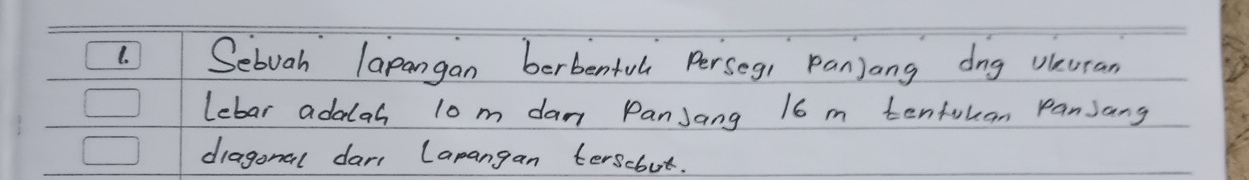 1. Sebuah lapangan berbentuk Persegi Panjang dng ukuran
Lebar adalah 10 m dan Panjang 16 m tentukan Panjang
diagonal dari Lapangan tersebut.